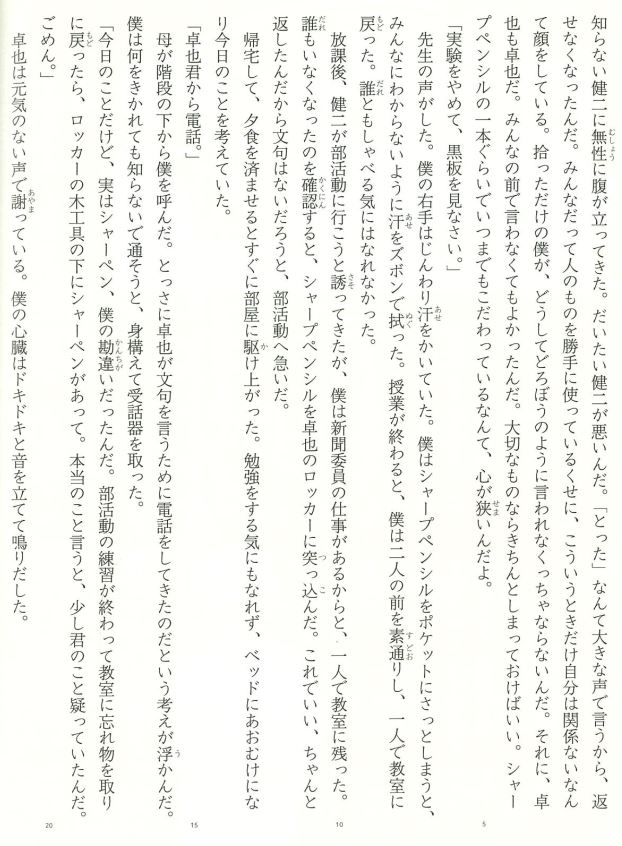 知らない健二に無性に腹が立ってきた。だいたい健二が悪いんだ。「とった」なんて大きな声で言うから、返
せなくなったんだ。みんなだって人のものを勝手に使っているくせに、こういうときだけ自分は関係ないなん
て顔をしている。拾っただけの僕が、どうしてどろぼうのように言われなくっちゃならないんだ。それに、卓
也も卓也だ。みんなの前で言わなくてもよかったんだ。大切なものならきちんとしまっておけばいい。シャー
プペンシルの一本ぐらいでいつまでもこだわっているなんて、心が狭いんだよ。
「実験をやめて、黒板を見なさい。」
先生の声がした。僕の右手はじんわり汗をかいていた。僕はシャープペンシルをポケットにさっとしまうと、
みんなにわからないように汗をズボンで拭った。授業が終わると、僕は二人の前を素通りし、一人で教室に
戻った。誰ともしゃべる気にはなれなかった。
放課後、健二が部活動に行こうと誘ってきたが、僕は新聞委員の仕事があるからと、一人で教室に残った。
誰もいなくなったのを確認すると、シャープペンシルを卓也のロッカーに突っ込んだ。これでいい、ちゃんと
返したんだから文句はないだろうと、部活動へ急いだ。
帰宅して、夕食を済ませるとすぐに部屋に駆け上がった。勉強をする気にもなれず、ベッドにあおむけにな
り今日のことを考えていた。
「卓也君から電話。」
母が階段の下から僕を呼んだ。とっさに卓也が文句を言うために電話をしてきたのだという考えが浮かんだ。
僕は何をきかれても知らないで通そうと、身構えて受話器を取った。
「今日のことだけど、実はシャーペン、僕の勘違いだったんだ。部活動の練習が終わって教室に忘れ物を取り
に戻ったら、ロッカーの木工具の下にシャーペンがあって。本当のこと言うと、少し君のこと疑っていたんだ。
ごめん。」
卓也は元気のない声で謝っている。僕の心臓はドキドキと音を立てて鳴りだした。
5
10
15
20